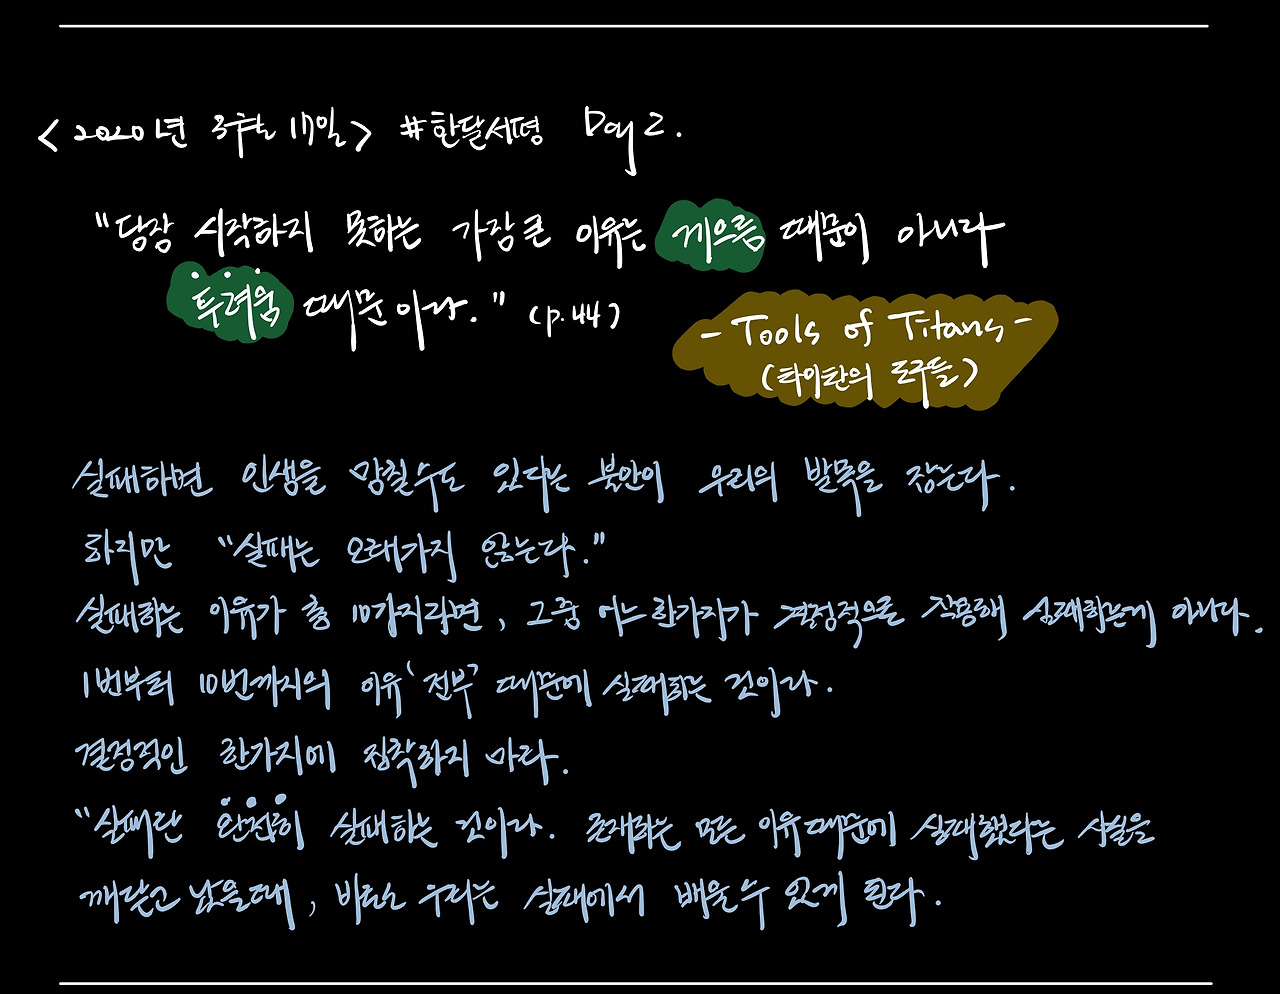 <2020년 3월 17일> #한달서평 Day 2.
"당장 시작하지 못하는 가장 큰 이유는 게으름 때문이 아니라
두려움 때문이라." (p.44)
- Tools of Titans -
(타이탄의 도구들)
실패하면 인생을 망칠수도 있다는 불안이 우리의 발목을 잡는다.
하지만 "실패는 오래가지 않는다."
실패하는 이유가 총 10가지라면, 그중 어느 한가지가 결정적으로 작용해 실패하는게 아니다.
1번부터 10번까지의 이유 '전부' 때문에 실패하는 것이라.
결정적인 한가지에 집착하지 마라.
"실패란 완전히 실패하는 것이라. 존재하는 모든 이유때문에 실패했다는 사실을
깨닫고 났을때, 비로소 우리는 실패에서 배울 수 있게 된다.